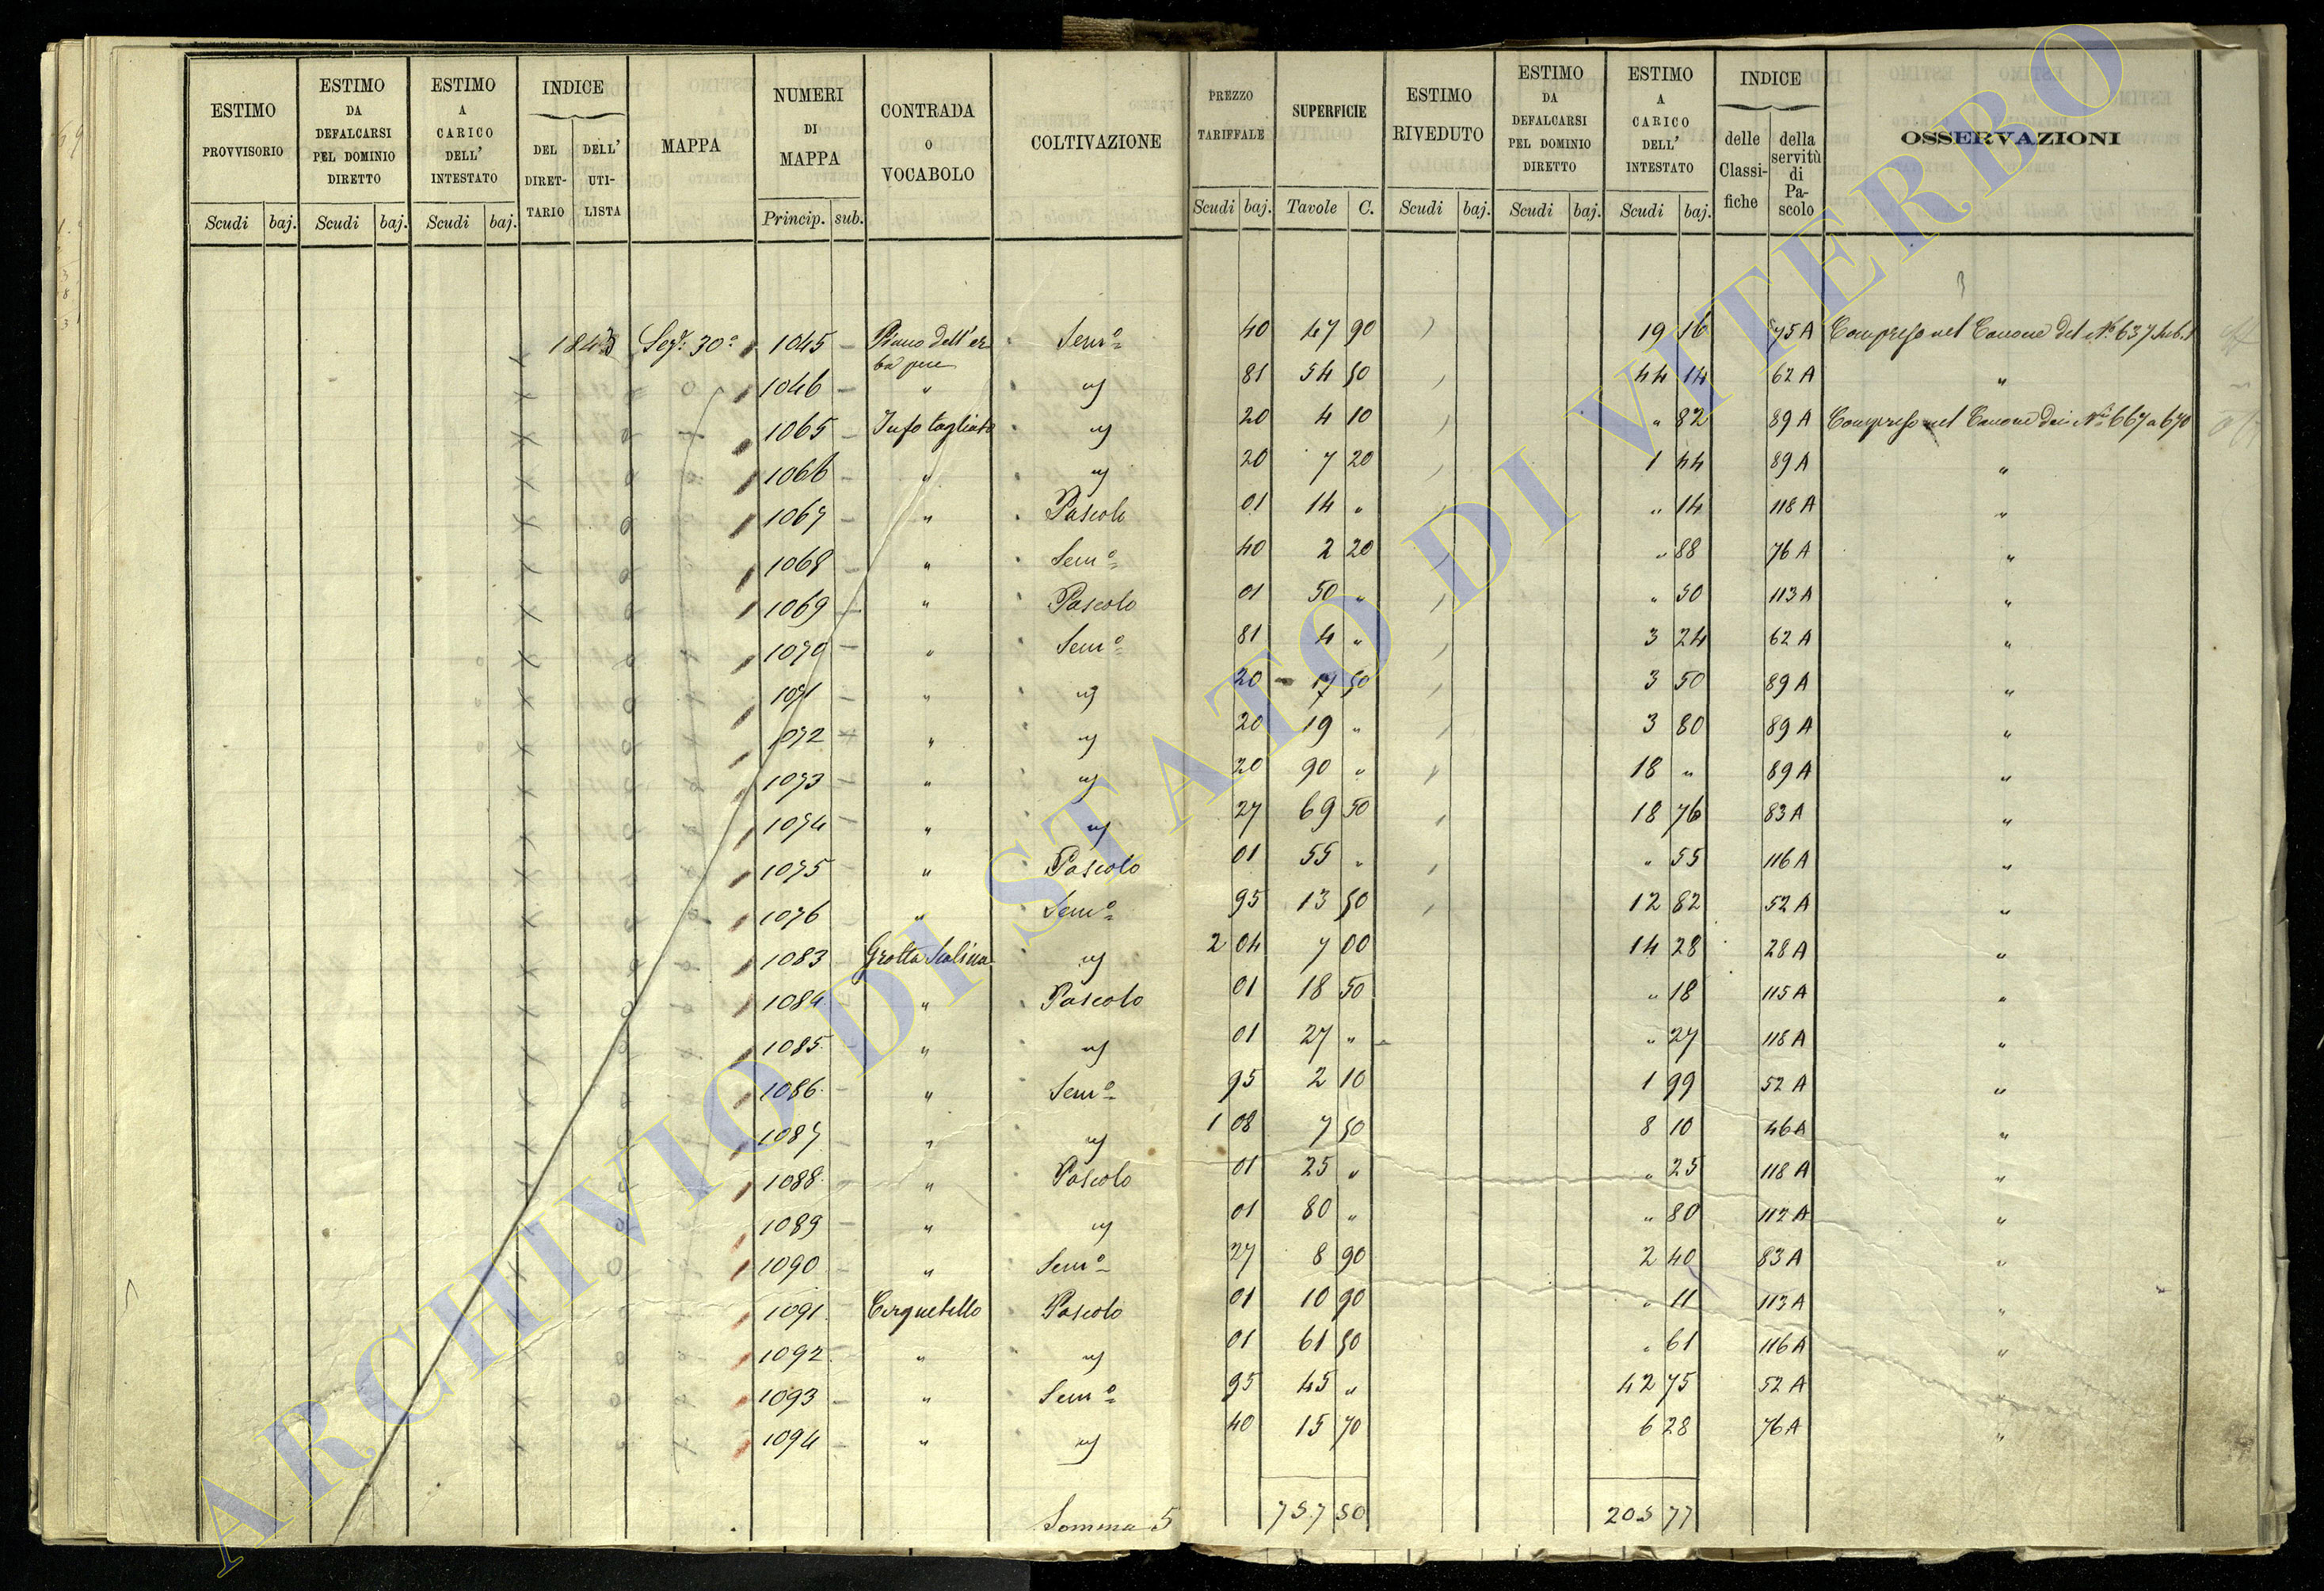 ESTIMO PROVVISORIO Scudi baj.
ESTIMO DA DEFALCARSI PEL DOMINIO DIRETTO Scudi baj.
ESTIMO A CARICO DELL' INTESTATO Scudi baj.
INDICE DEL DIRET-TARIO DELL' UTI-LISTA
MAPPA
NUMERI DI MAPPA Princip. sub.
CONTRADA O VOCABOLO
COLTIVAZIONE
PREZZO TARIFFALE Scudi baj.
SUPERFICIE Tavole C.
ESTIMO RIVEDUTO Scudi baj.
ESTIMO DA DEFALCARSI PEL DOMINIO DIRETTO Scudi baj.
ESTIMO A CARICO DELL' INTESTATO Scudi baj.
INDICE delle Classi-fiche della servitù di Pa-scolo
OSSERVAZIONI
Sez.e 30a 1045 Piano dell'er Sem.o 40 47 90 19 16 75 A Compreso nel Canone del No. 637 sub. 1
1046 " " 81 54 50 44 14 62 A "
1065 Tufo tagliato " 20 4 10 " 82 89 A Compreso nel Canone dei Ni. 667 a 670
1066 " " 20 7 20 1 44 89 A "
1067 " Pascolo 01 14 " " 14 118 A "
1068 " Sem.o 40 2 20 " 88 76 A "
1069 " Pascolo 01 50 " " 50 113 A "
1070 " Sem.o 81 4 " 3 24 62 A "
1071 " " 20 17 50 3 50 89 A "
1072 " " 20 19 " 3 80 89 A "
1073 " " 20 90 " 18 " 89 A "
1074 " " 27 69 50 18 76 83 A "
1075 " Pascolo 01 55 " " 55 116 A "
1076 " Sem.o 95 13 50 12 82 52 A "
1083 Grotta Scalina " 2 04 7 00 14 28 28 A "
1084 " Pascolo 01 18 50 " 18 115 A "
1085 " " 01 27 " " 27 118 A "
1086 " Sem.o 95 2 10 1 99 52 A "
1087 " " 1 08 7 50 8 10 46 A "
1088 " Pascolo 01 25 " " 25 118 A "
1089 " " 01 80 " " 80 112 A "
1090 " Sem.o 27 8 90 2 40 83 A "
1091 Cerquetello Pascolo 01 10 90 " 11 113 A "
1092 " " 01 61 50 " 61 116 A "
1093 " Sem.o 95 45 " 42 75 52 A "
1094 " " 40 15 70 6 28 76 A "
Somma 757 50 205 77
ARCHIVIO DI STATO DI VITERBO